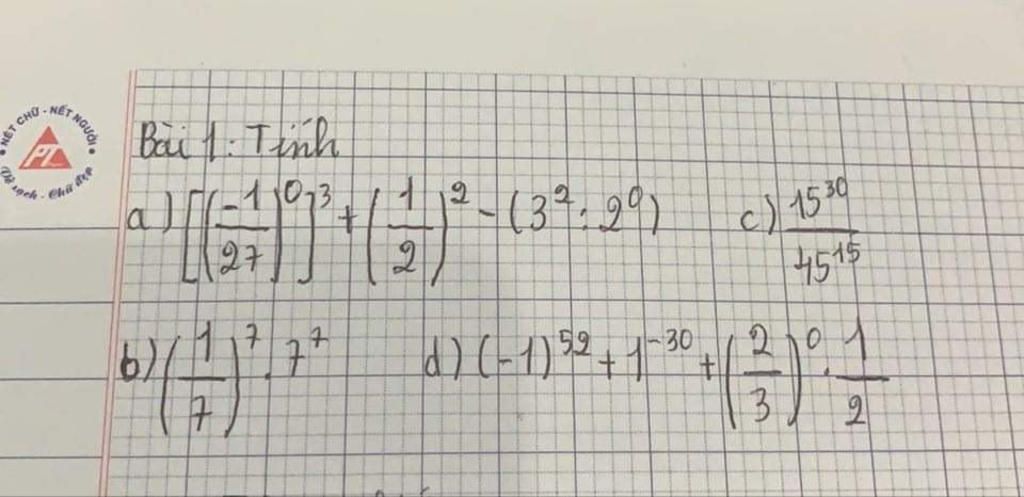 NÉT CHỮ - NẾT NGƯỜI
PL
Vở sạch - Chữ đẹp
Bài 1: Tính
a) [(-1/27)^0]^3 + (1/2)^2 - (3^2 : 2^0) c) 15^30/45^15
b) (1/7)^7 . 7^7 d) (-1)^52 + 1^-30 + (2/3)^0 . 1/2